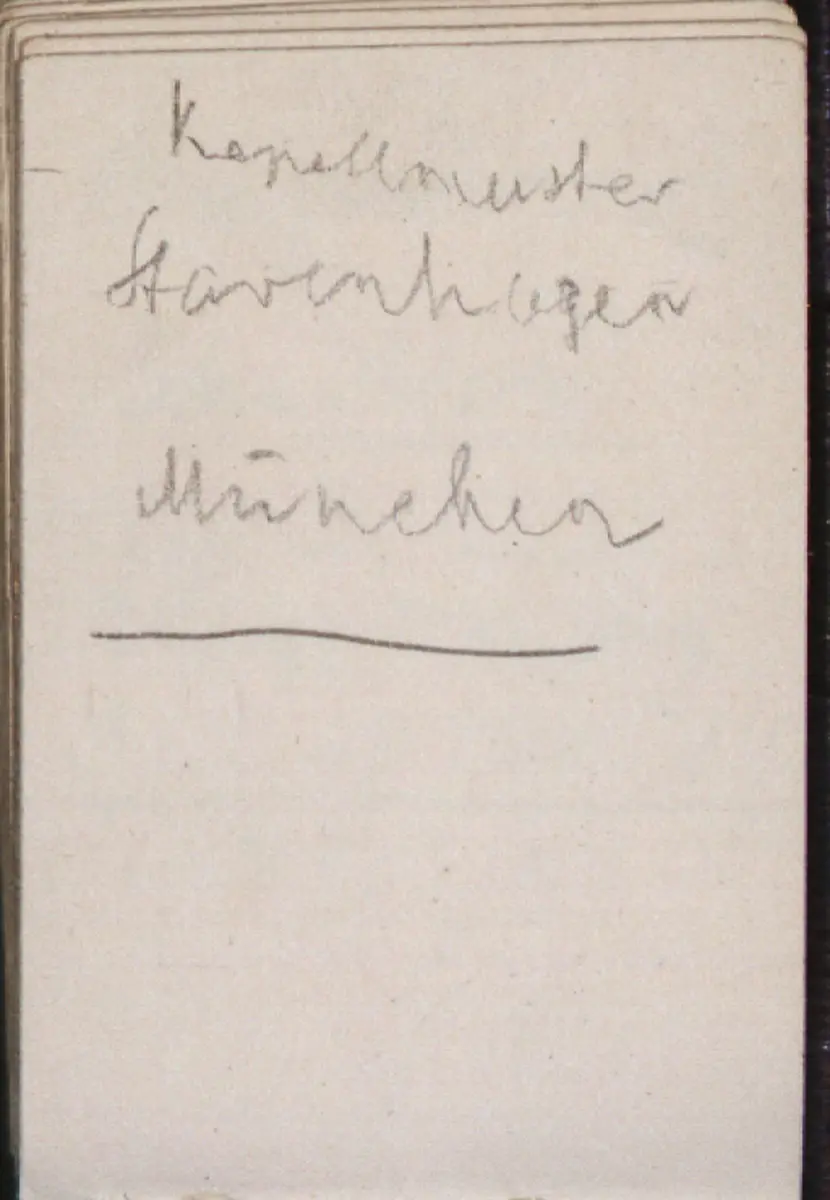 Kapellmeister
Stavenhagen
München